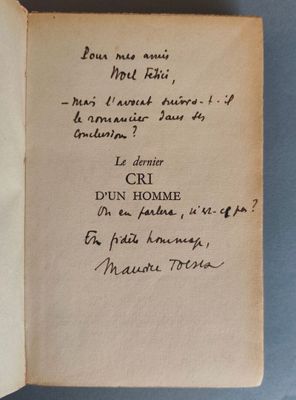 Pour mes amis
Noel Felici,
– Mais l'avocat suivra-t-il
le romancier dans ses
conclusions?
Le dernier
CRI
D'UN HOMME
On en parlera, n'est-ce pas?
En fidèle hommage,
Maurice Toesca